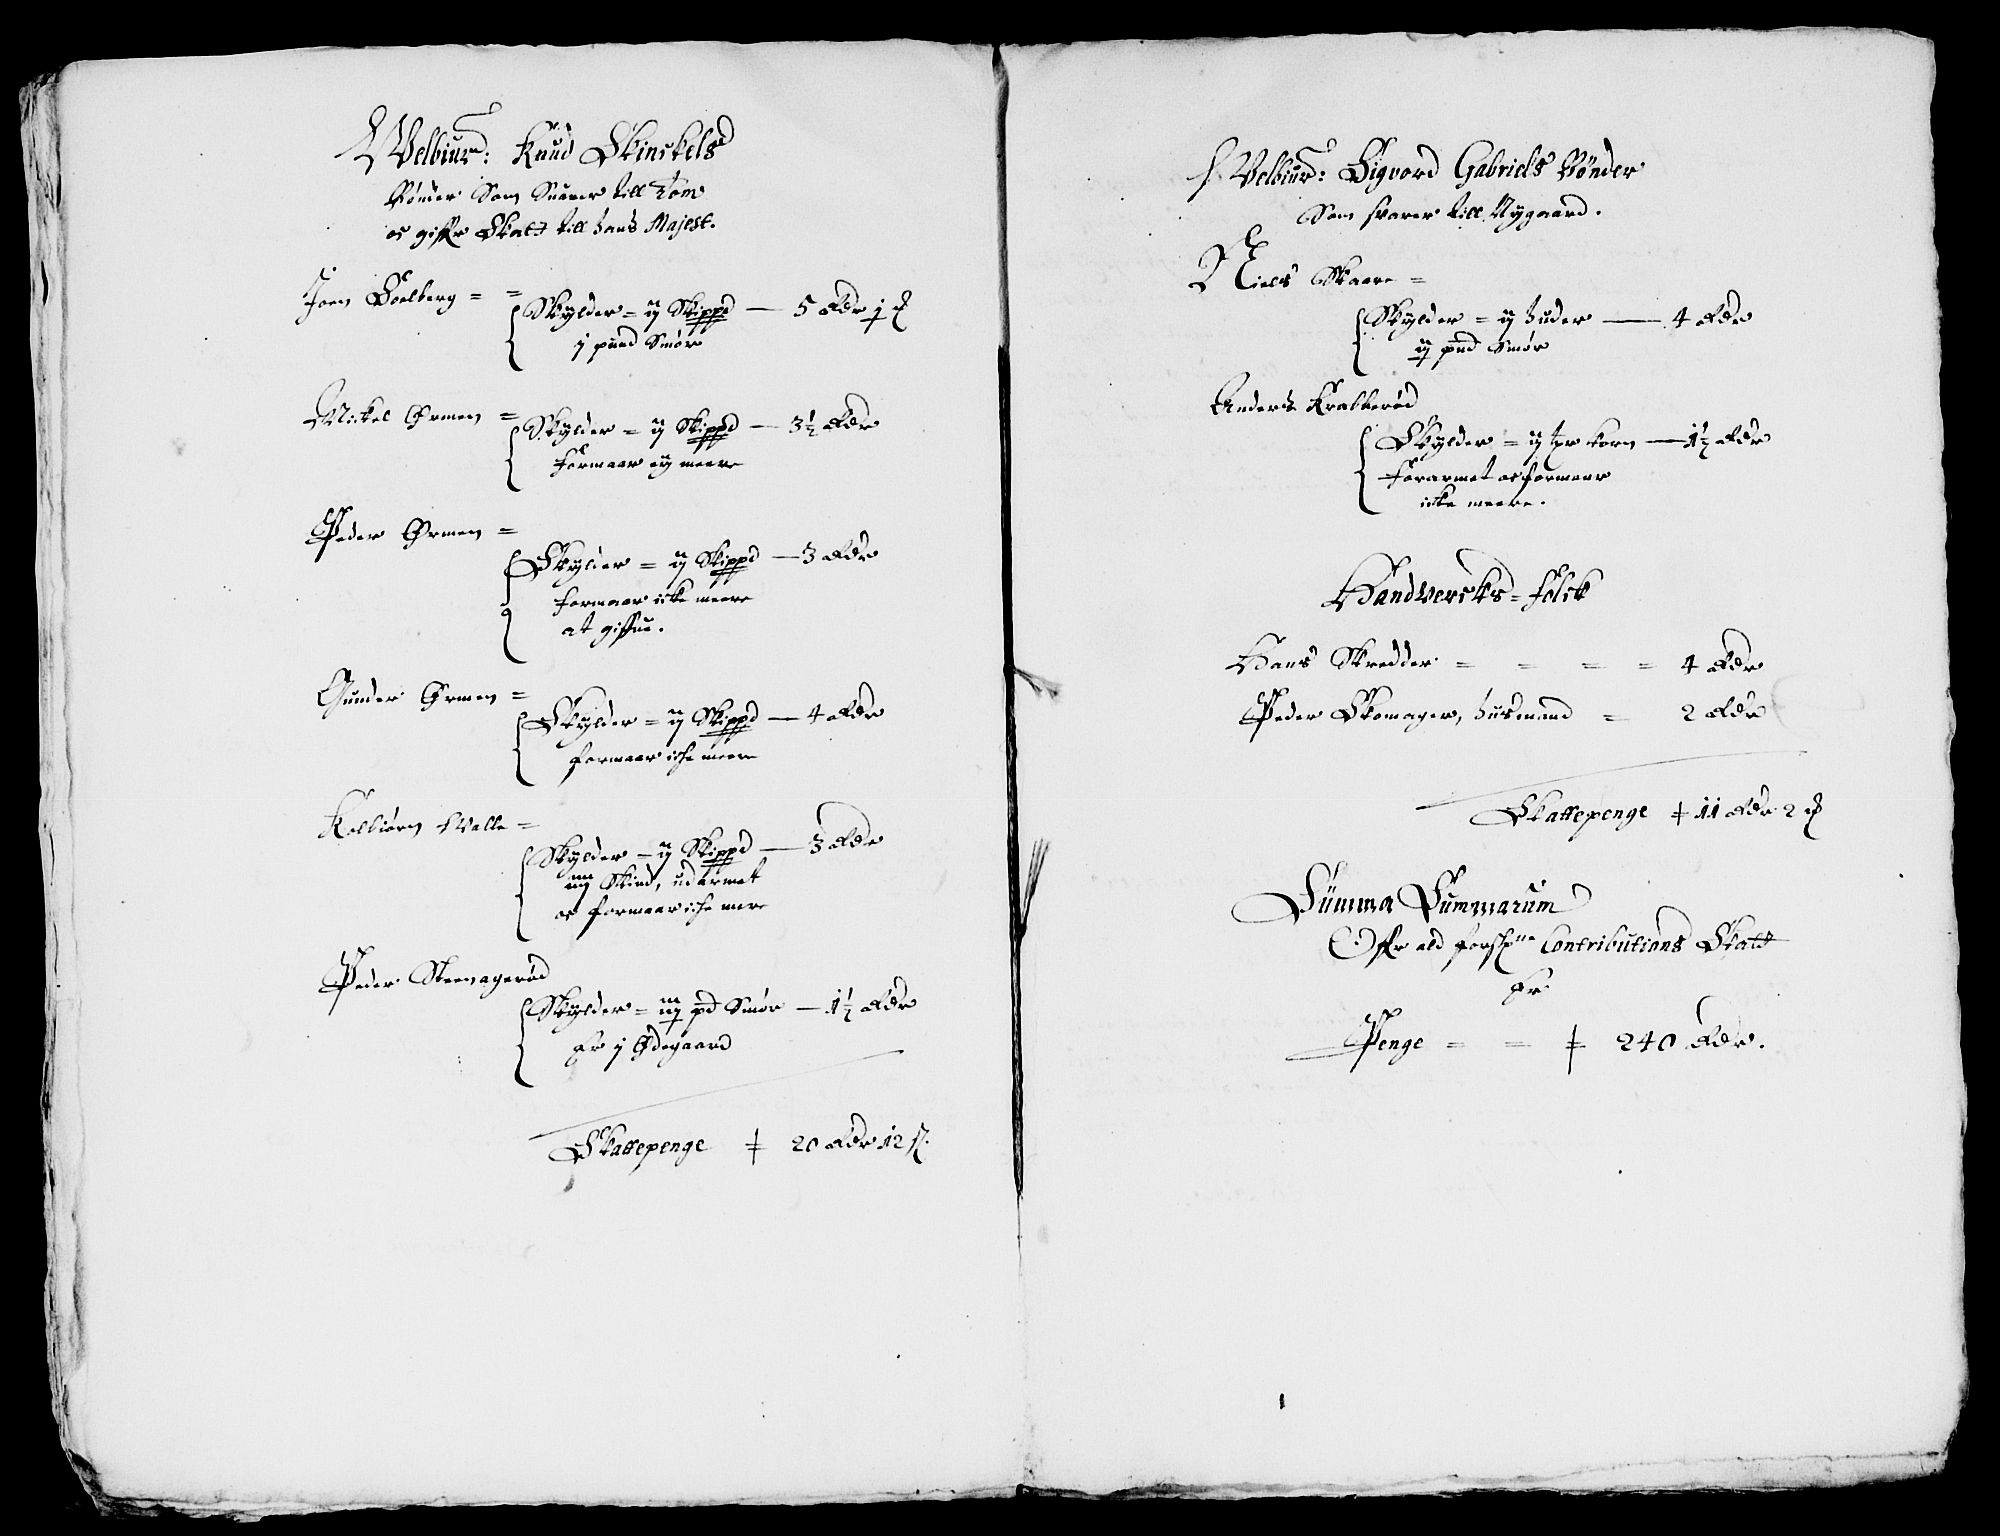 Velbiur: Knud Skinckels
Bønder Som Suarer till Tom
oc giffr Skatt till hans Majest.
Joen Soelberg = =
Skylder = ij Skippd — 5 Rdr j
j pund Smør
Mickel Ørmen =
Skylder = ij Skippd — 3½ Rdr
formaar ey meere
Peder Ørmen =
Skylder = ij Skippd — 3 Rdr
formaar icke meere
at giffue.
Gunder Ørmen =
Skylder = ij Skippd — 4 Rdr
formaar iche meere
Kolbiørn Walle =
Skylder — ij Skippd — 3 Rdr
iiij Skind, udarmet
oc formaar iche mere
Peder Steenagerød
Skylder = iij pd Smør — 1½ Rdr
er j Ødegaard
Skattepenge ‡ 20 Rdr 12 ß.
Velbiur: Sigvord Gabriels Bønder
Som svarer till Nygaard.
Niels Skaare =
Skylder = ij huder — 4 Rdr
ij pnd Smør
Anders Krabberød
Skylder = ij tpr korn — 1½ Rdr
forarmet oc formaar
icke meere.
Handvercks = folck
Hans Skredder = = = = 4 Rdr
Peder Skomager, husmand = 2 Rdr
Skattepenge ‡ 11 Rdr 2
Summa Summarum
Offr ald forschne Contributions Skatt
er
Penge = = ‡ 240 Rdr.